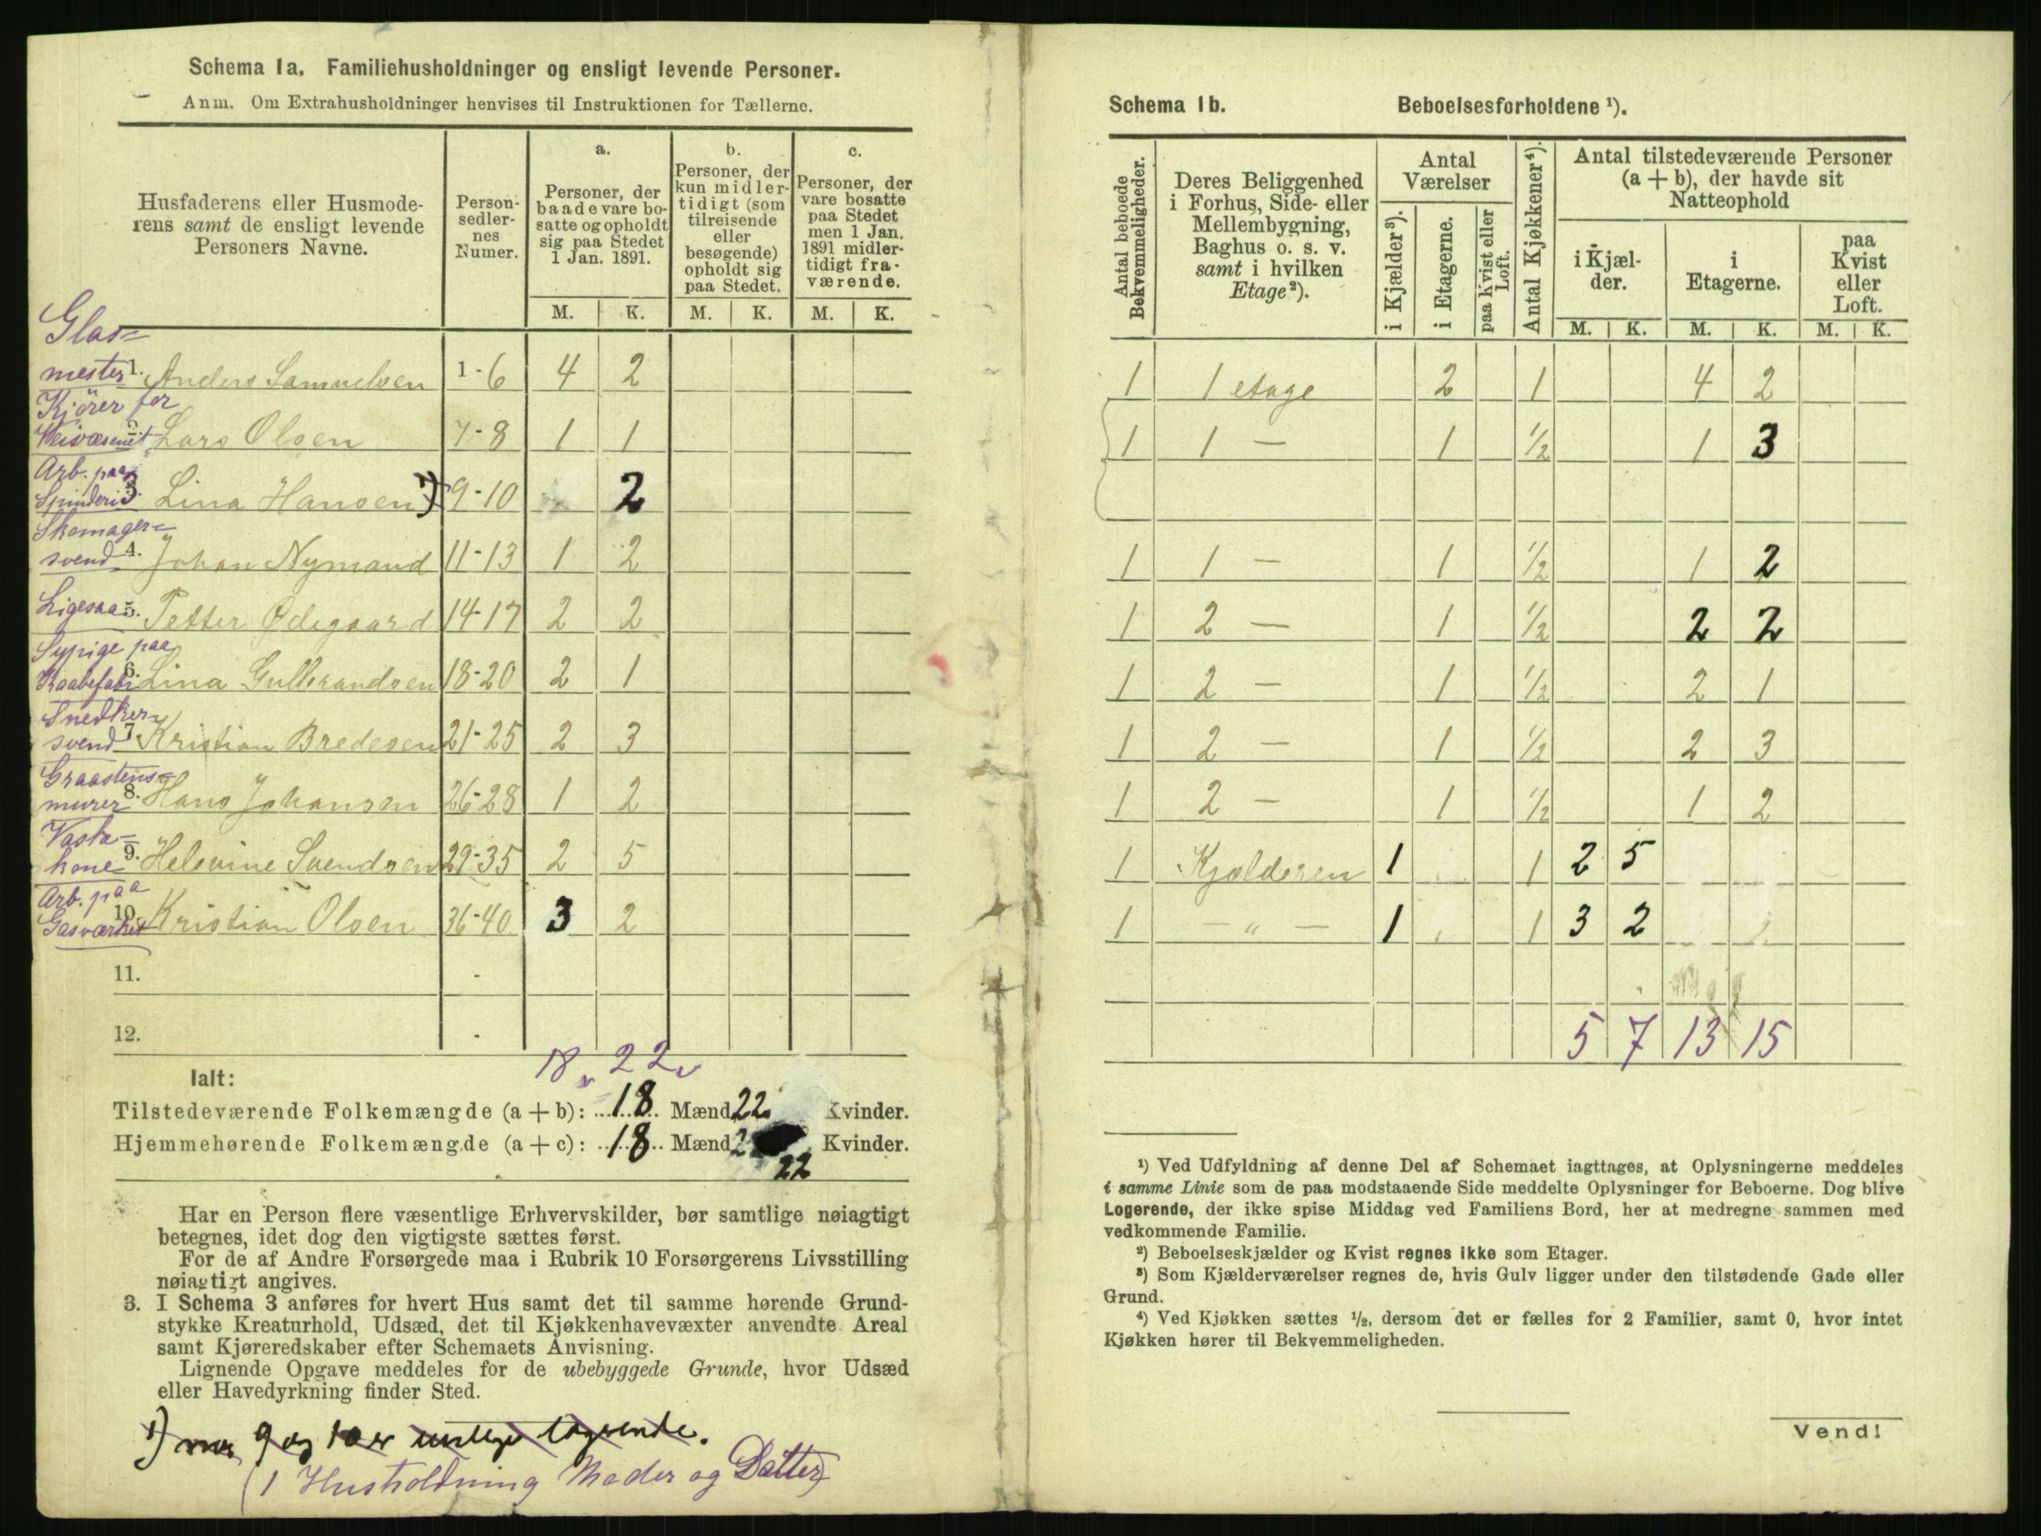 Schema 1a. Familiehusholdninger og ensligt levende Personer.
Anm. Om Extrahusholdninger henvises til Instruktionen for Tællerne.
Husfaderens eller Husmoderens samt de ensligt levende Personers Navne.
Personsedlernes Numer.
a.
Personer, der baade vare bosatte og opholdt sig paa Stedet 1 Jan. 1891.
b.
Personer, der kun midlertidigt (som tilreisende eller besøgende) opholdt sig paa Stedet.
c.
Personer, der vare bosatte paa Stedet men 1 Jan. 1891 midlertidigt fraværende.
M. K. M. K. M. K.
Glasmester 1. Anders Samuelsen 1-6 4 2
Kjörer for Veivæsenet 2. Lars Olsen 7-8 1 1
Arb. paa Spinderi 3. Lina Hansen 1) 9-10 2
Skomagersvend 4. Johan Nymand 11-13 1 2
Ligesaa 5. Petter Ødegaard 14-17 2 2
Sypige paa Kaabefabr. 6. Lina Gulbrandsen 18-20 2 1
Snedkersvend 7. Kristian Bredesen 21-25 2 3
Graastensmurer 8. Hans Johansen 26-28 1 2
Vaskekone 9. Helevine Svendsen 29-35 2 5
Arb. paa Gasværket 10. Kristian Olsen 36-40 3 2
11. -
12. -
18 22
Ialt:
Tilstedeværende Folkemængde (a + b): 18 Mænd 22 Kvinder.
Hjemmehørende Folkemængde (a + c): 18 Mænd 22 Kvinder.
Har en Person flere væsentlige Erhvervskilder, bør samtlige nøiagtigt
betegnes, idet dog den vigtigste sættes først.
For de af Andre Forsørgede maa i Rubrik 10 Forsørgerens Livsstilling
nøiagtigt angives.
3. I Schema 3 anføres for hvert Hus samt det til samme hørende Grund-
stykke Kreaturhold, Udsæd, det til Kjøkkenhavevæxter anvendte Areal
samt Kjøreredskaber efter Schemaets Anvisning.
Lignende Opgave meddeles for de ubebyggede Grunde, hvor Udsæd
eller Havedyrkning finder Sted.
1) 9 og 10 er logerende.
(1 Husholdning Moder og Datter)
Schema 1b. Beboelsesforholdene ¹).
Antal beboede Bekvemmeligheder.
Deres Beliggenhed i Forhus, Side- eller Mellembygning, Baghus o. s. v. samt i hvilken Etage²).
Antal Værelser
i Kjælder³).
i Etagerne.
paa Kvist eller Loft.
Antal Kjøkkener⁴).
Antal tilstedeværende Personer (a + b), der havde sit Natteophold
i Kjælder.
i Etagerne.
paa Kvist eller Loft.
M. K. M. K. M. K.
1 1 etage 2 1 4 2
1 1 — 1 ½ 1 3
1 1 — 1 ½ 1 2
1 2 — 1 ½ 2 2
1 2 — 1 ½ 2 1
1 2 — 1 ½ 2 3
1 2 — 1 ½ 1 2
1 Kjælderen 1 1 2 5
1 — „ — 1 1 3 2
5 7 13 15
¹) Ved Udfyldning af denne Del af Schemaet iagttages, at Oplysningerne meddeles
i samme Linie som de paa modstaaende Side meddelte Oplysninger for Beboerne. Dog blive
Logerende, der ikke spise Middag ved Familiens Bord, her at medregne sammen med
vedkommende Familie.
²) Beboelseskjælder og Kvist regnes ikke som Etager.
³) Som Kjælderværelser regnes de, hvis Gulv ligger under den tilstødende Gade eller
Grund.
⁴) Ved Kjøkken sættes ½, dersom det er fælles for 2 Familier, samt 0, hvor intet
Kjøkken hører til Bekvemmeligheden.
Vend!